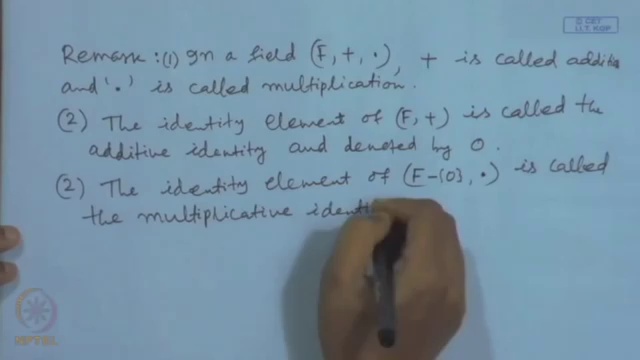 © CET
I.I.T. KGP
Remark : (1) In a field (F, +, ·), + is called additio
and '·' is called multiplication.
(2) The identity element of (F, +) is called the
additive identity and denoted by 0.
(2) The identity element of (F-{0}, ·) is called
the multiplicative identi
NPTEL